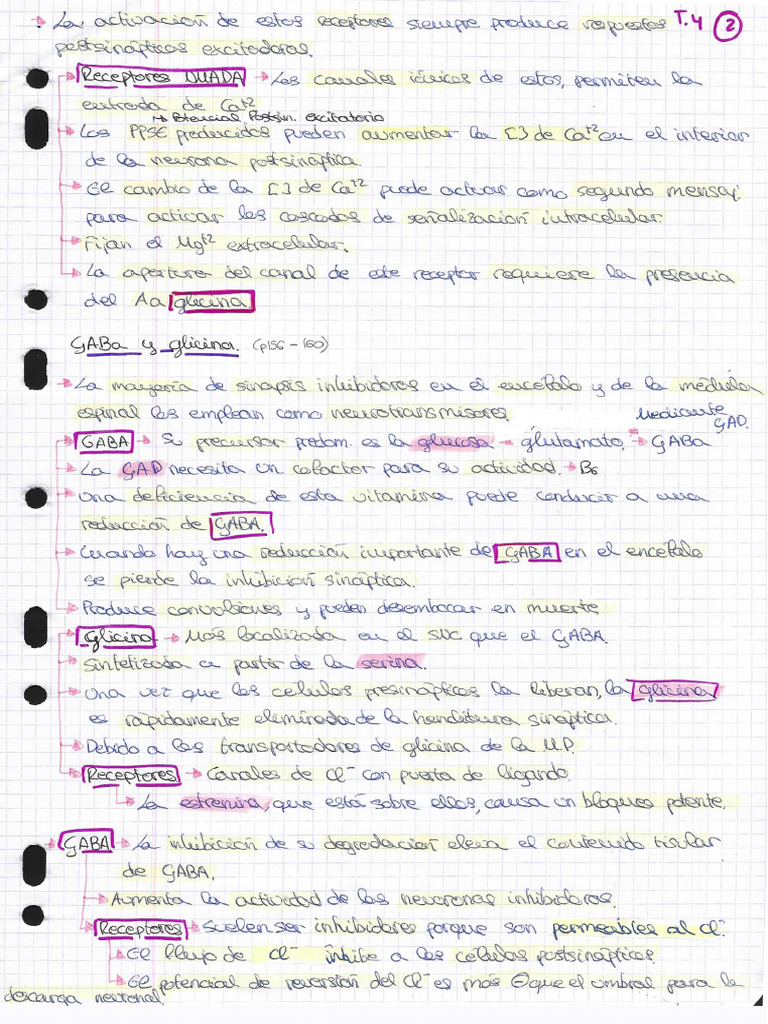 La activación de estos receptores siempre produce respuestas T.4 ②
postsinápticos excitadoras.
Receptores NMADA → Los canales iónicos de estos, permiten la
entrada de Ca+2
↳ Potencial Postsin. excitatorio
Los PPSE producidos pueden aumentar la [ ] de Ca+2 en el interior
de la neurona postsináptica.
El cambio de la [ ] de Ca+2 puede actuar como segundo mensaj.
para activar las cascadas de señalización intracelular.
Fijan el Mg+2 extracelular.
La apertura del canal de este receptor requiere la presencia
del Aa glicina.
GABa y glicina. (p156 - 160)
La mayoría de sinapsis inhibidoras en el encéfalo y de la médula
espinal los emplean como neurotransmisores.
Mediante GAD.
GABA → Su precursor predom. es la glucosa → glutamato. → GABa
La GAD necesita un cofactor para su actividad. → B6
Una deficiencia de esta vitamina puede conducir a una
reducción de GABA.
Cuando hay una reducción importante de GABA en el encéfalo
se pierde la inhibición sináptica.
Produce convulsiones y pueden desembocar en muerte
Glicina → Más localizada en el SNC que el GABA.
Sintetizada a partir de la serina.
Una vez que las células presinápticas la liberan, la glicina
es rápidamente eliminada de la hendidura sináptica.
Debido a los transportadores de glicina de la M.P.
Receptores → Canales de Cl⁻ con puerta de ligando.
La estrenina, que está sobre ellos, causa un bloqueo potente.
GABA → La inhibición de su degradación eleva el contenido tisular
de GABA.
Aumenta la actividad de las neuronas inhibidoras.
Receptores → Suelen ser inhibidores porque son permeables al Cl⁻
El flujo de Cl⁻ inhibe a las células postsinápticas.
El potencial de reversión del Cl⁻ es más ⊖ que el umbral para la
descarga neuronal.